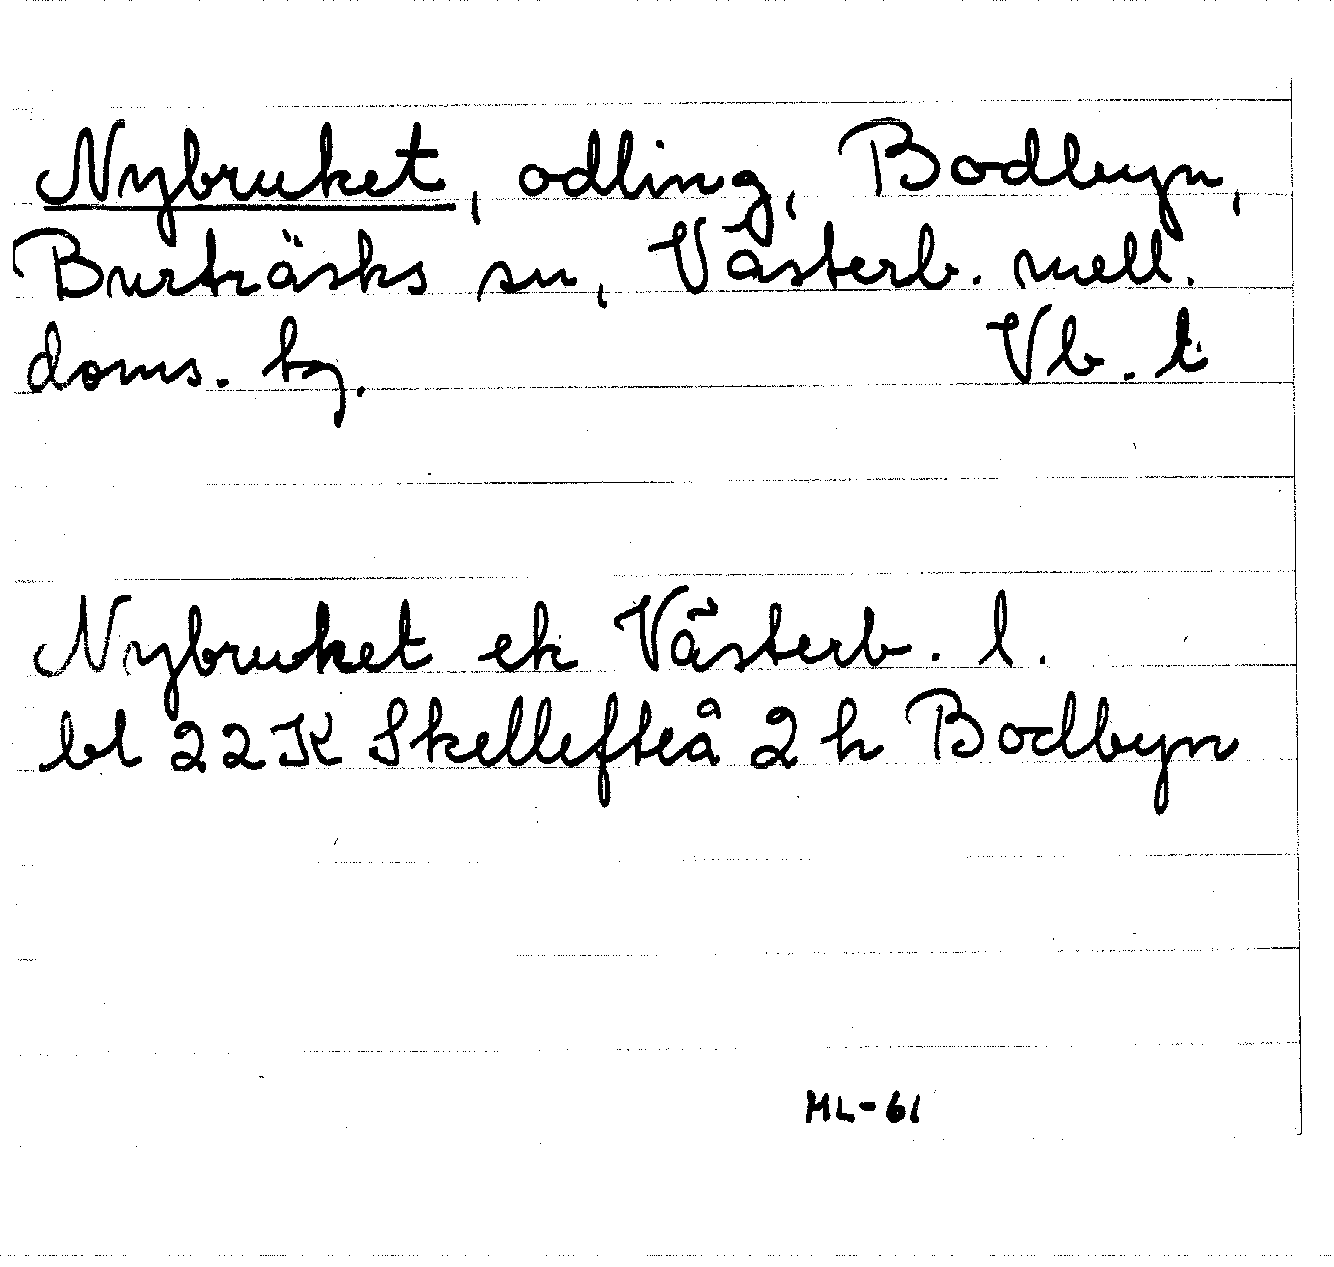 Nybruket, odling, Bodbyn,
Burträsks sn, Västerb. mell.
doms. tg. Vb. l
Nybruket ek Västerb. l.
bl 22K Skellefteå 2 h Bodbyn
ML-61